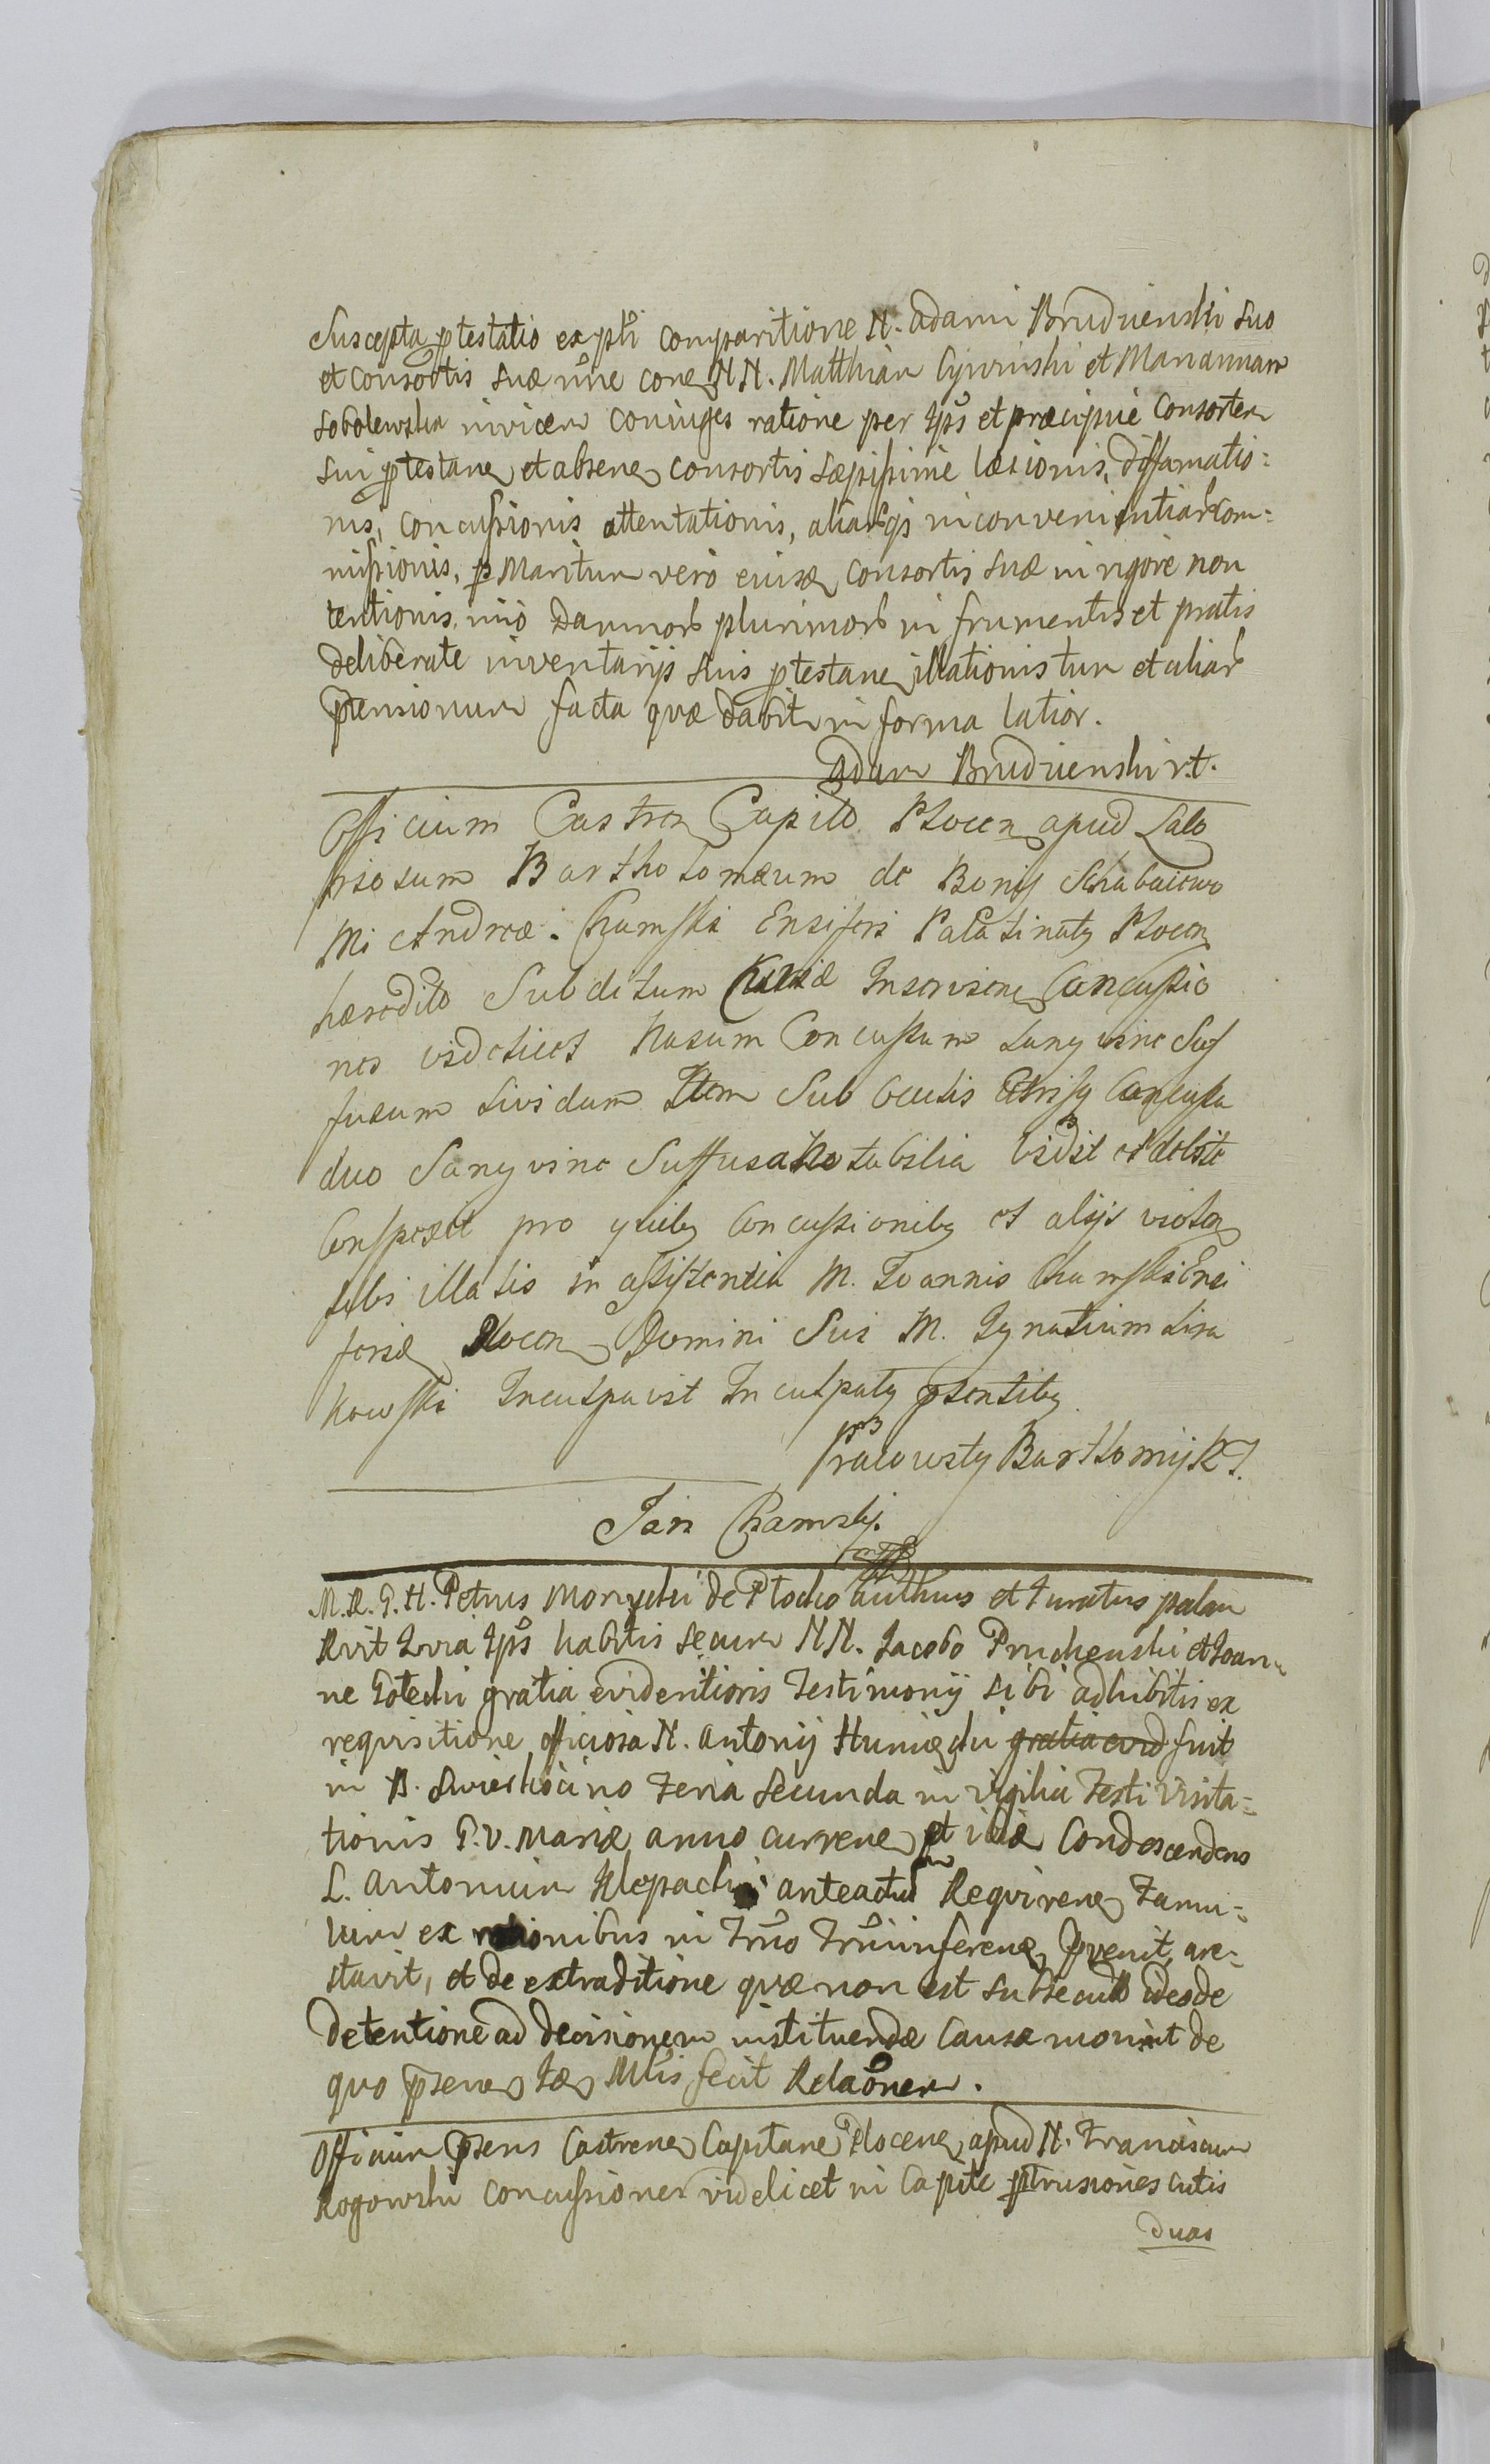 Suscepta ptestatio ex psti comparitione N. Adami Brudzienski suo
et consortis suæ nne con NN. Matthian Cywinski et Mariannam
Sobolewska invicem coniuges ratione per Ips et præcipue consortem
sui ptestan et absen consortis sæpissime læsionis, diffamatio=
nis, concussionis attentationis, aliarqs inconvenientiar com=
missionis, p Maritum vero eiusd consortis suæ in rigore non
tentionis, imo damnor plurimor in frumentis et pratis
deliberate inventarijs suis ptestan illationis tum et aliar
ptensionum facta quæ dabit in forma latior.
Adam Brudzienski rt.
Officium Castren Capit Plocen apud Labo
riosum Bartholomæum de Bonis
M Andreæ Chamski Ensiferi Palatinatg Plocen
hæredit Subditum Inscrisen Concussio
nes videlicet Nasum Concussum Sangvine Suf
fusum lividum Item Sub Oculis Utrisq Concussa
duo Sangvine Suffusa Notabilia Vidit et
Conspexit pro quibg Concussionibg et alijs violen
sibi illatis in assistentia M. Joannis Chamski Ensi
feri Plocen Domini Sui M. Ignatium Lisa
kowski Inculpavit Inculpatg psentibg
Pracowity Barthomij RT.
Jan Chamski
M.R.T.H. Petrus Monycki de Plocko authus et Juratus palam
Rvit Ivia Ips habitis secum NN. Jacobo Pruchenski et Joan=
ne Gotecki gratia evidentioris Testimonij sibi adhibitis ex
requisitione officiosa N. Antonij Humięcki gratia evid fuit
in B. Swierkocino Feria Secunda in Vigilia Festi Visita=
tionis B.V. Mariæ anno curren et ibid Condescendens
L. Antonium Klepacki anteactum Requiren Famu=
lum ex rationibus in Tmo Trmi inferen pvenit, are=
stavit, et de extraditione quæ non est subsecuta ideo de
detentione ad decisionem instituendæ causæ movit de
quo psen Mtis fecit Relaonem.
Officium psens Castren Capitan Plocen apud N. Franciscum
Rogowski concussiones videlicet in Capite ptrusiones cutis
duas